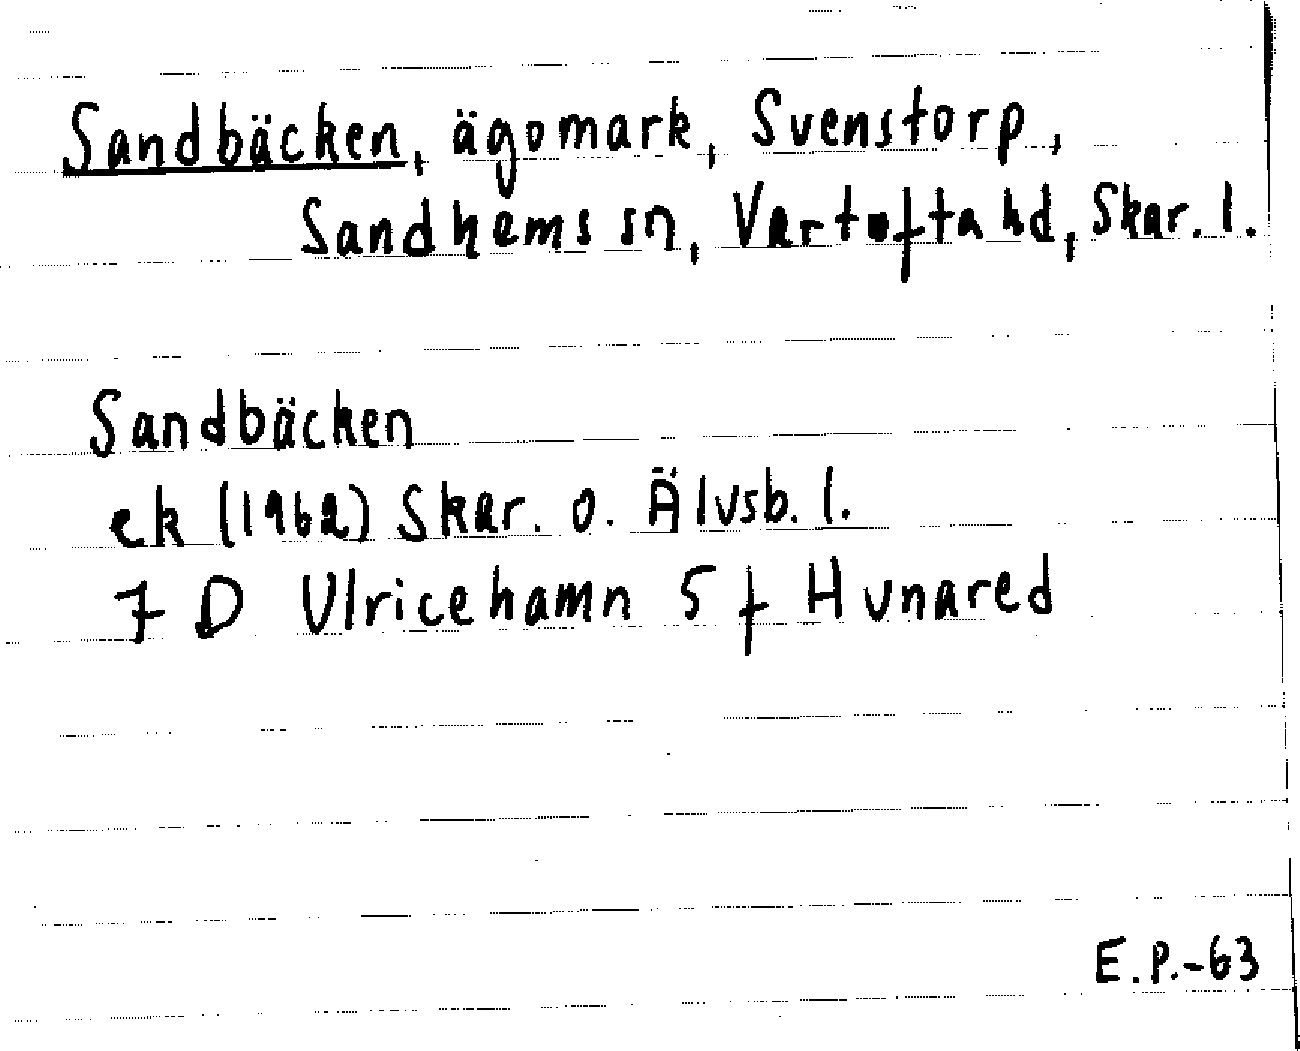 Sandbäcken, ägomark, Svenstorp,
Sandhems sn, Vartofta hd, Skar. l.
Sandbäcken
ek (1962) Skar. o. Älvsb. l.
7 D Ulricehamn 5 f Hunared
E.P.-63